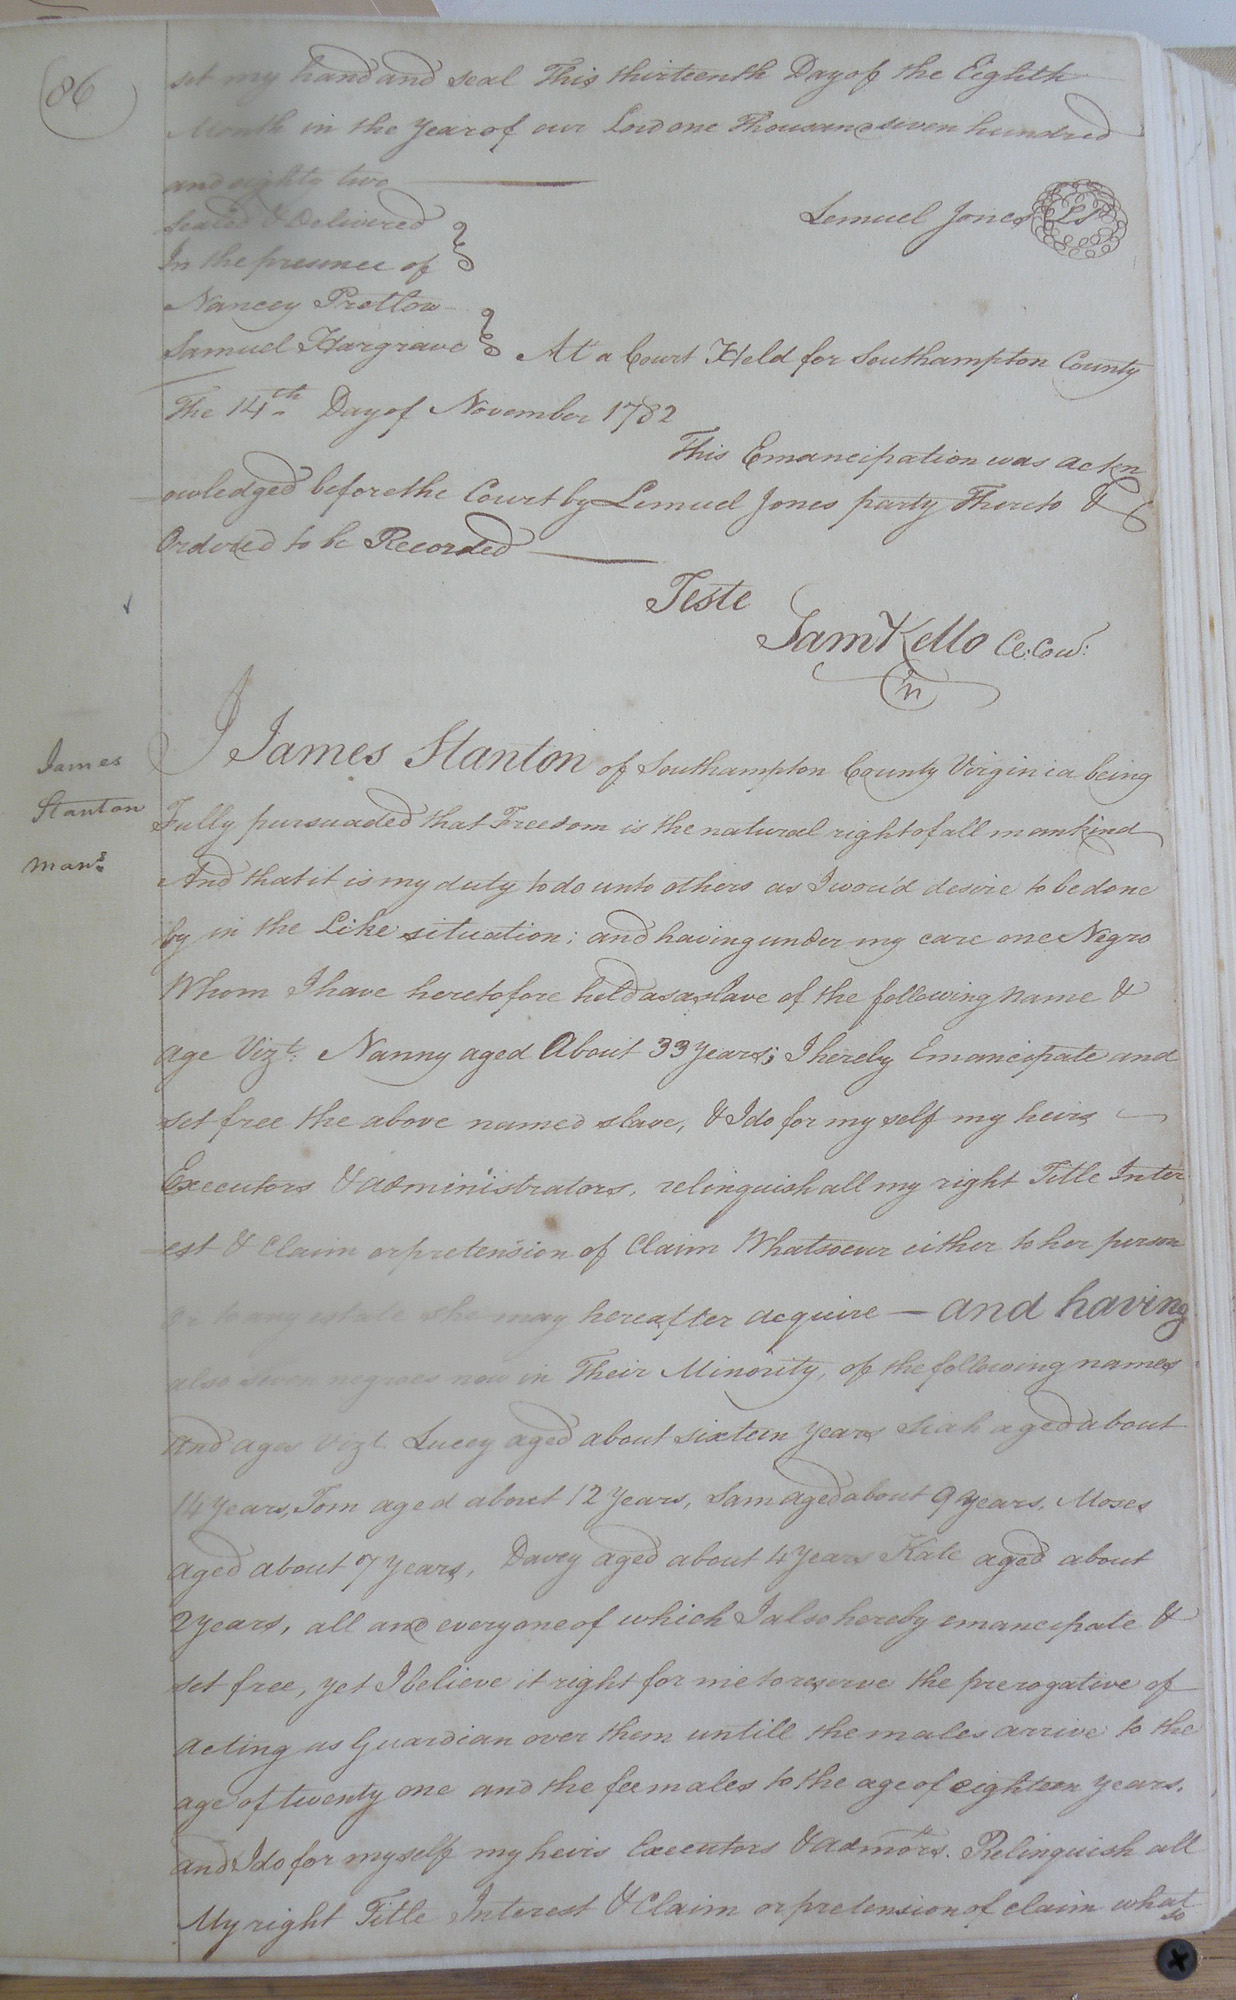 86
set my hand and seal This thirteenth Day of the Eighth
Month in the year of our Lord one Thousand seven hundred
and eighty two
Lemuel Jones LS
sealed & Delivered
In the presence of
Nancey Pretlow
Samuel Hargrave
At a Court Held for Southampton County
The 14th Day of November 1782
This Emancipation was ackn
owledged before the Court by Lemuel Jones party Thereto &
Ordered to be Recorded
Teste
Sam Kello Cl: Cou:
James
Stanton
Mans
I James Stanton of Southampton County Virginia being
Fully pursuaded that Freedom is the natural right of all mankind
And that it is my duty to do unto others as I wou'd desire to be done
by in the Like situation; and having under my care one Negro
Whom I have heretofore held as a slave of the following name &
age Vizt. Nanny aged About 33 years; I hereby Emancipate and
set free the above named slave, & I do for my self my heirs
Executors & administrators, relinquish all my right Title Inter
est & Claim or pretension of Claim Whatsoever either to her person
or to any estate she may hereafter acquire — and having
also seven negroes now in Their Minority, of the following names
And ages vizt Lucey aged about sixteen years Siah aged about
14 years, Tom aged about 12 years, Sam aged about 9 years, Moses
aged about 7 years, Davey aged about 4 years Kate aged about
2 years, all and every one of which I also hereby emancipate &
set free, yet I believe it right for me to reserve the prerogative of
acting as Guardian over them untill the males arrive to the
age of twenty one and the feemales to the age of eighteen years.
and I do for myself my heirs Executors & admors. Relinquish all
My right Title Interest & Claim or pretension of claim what
so